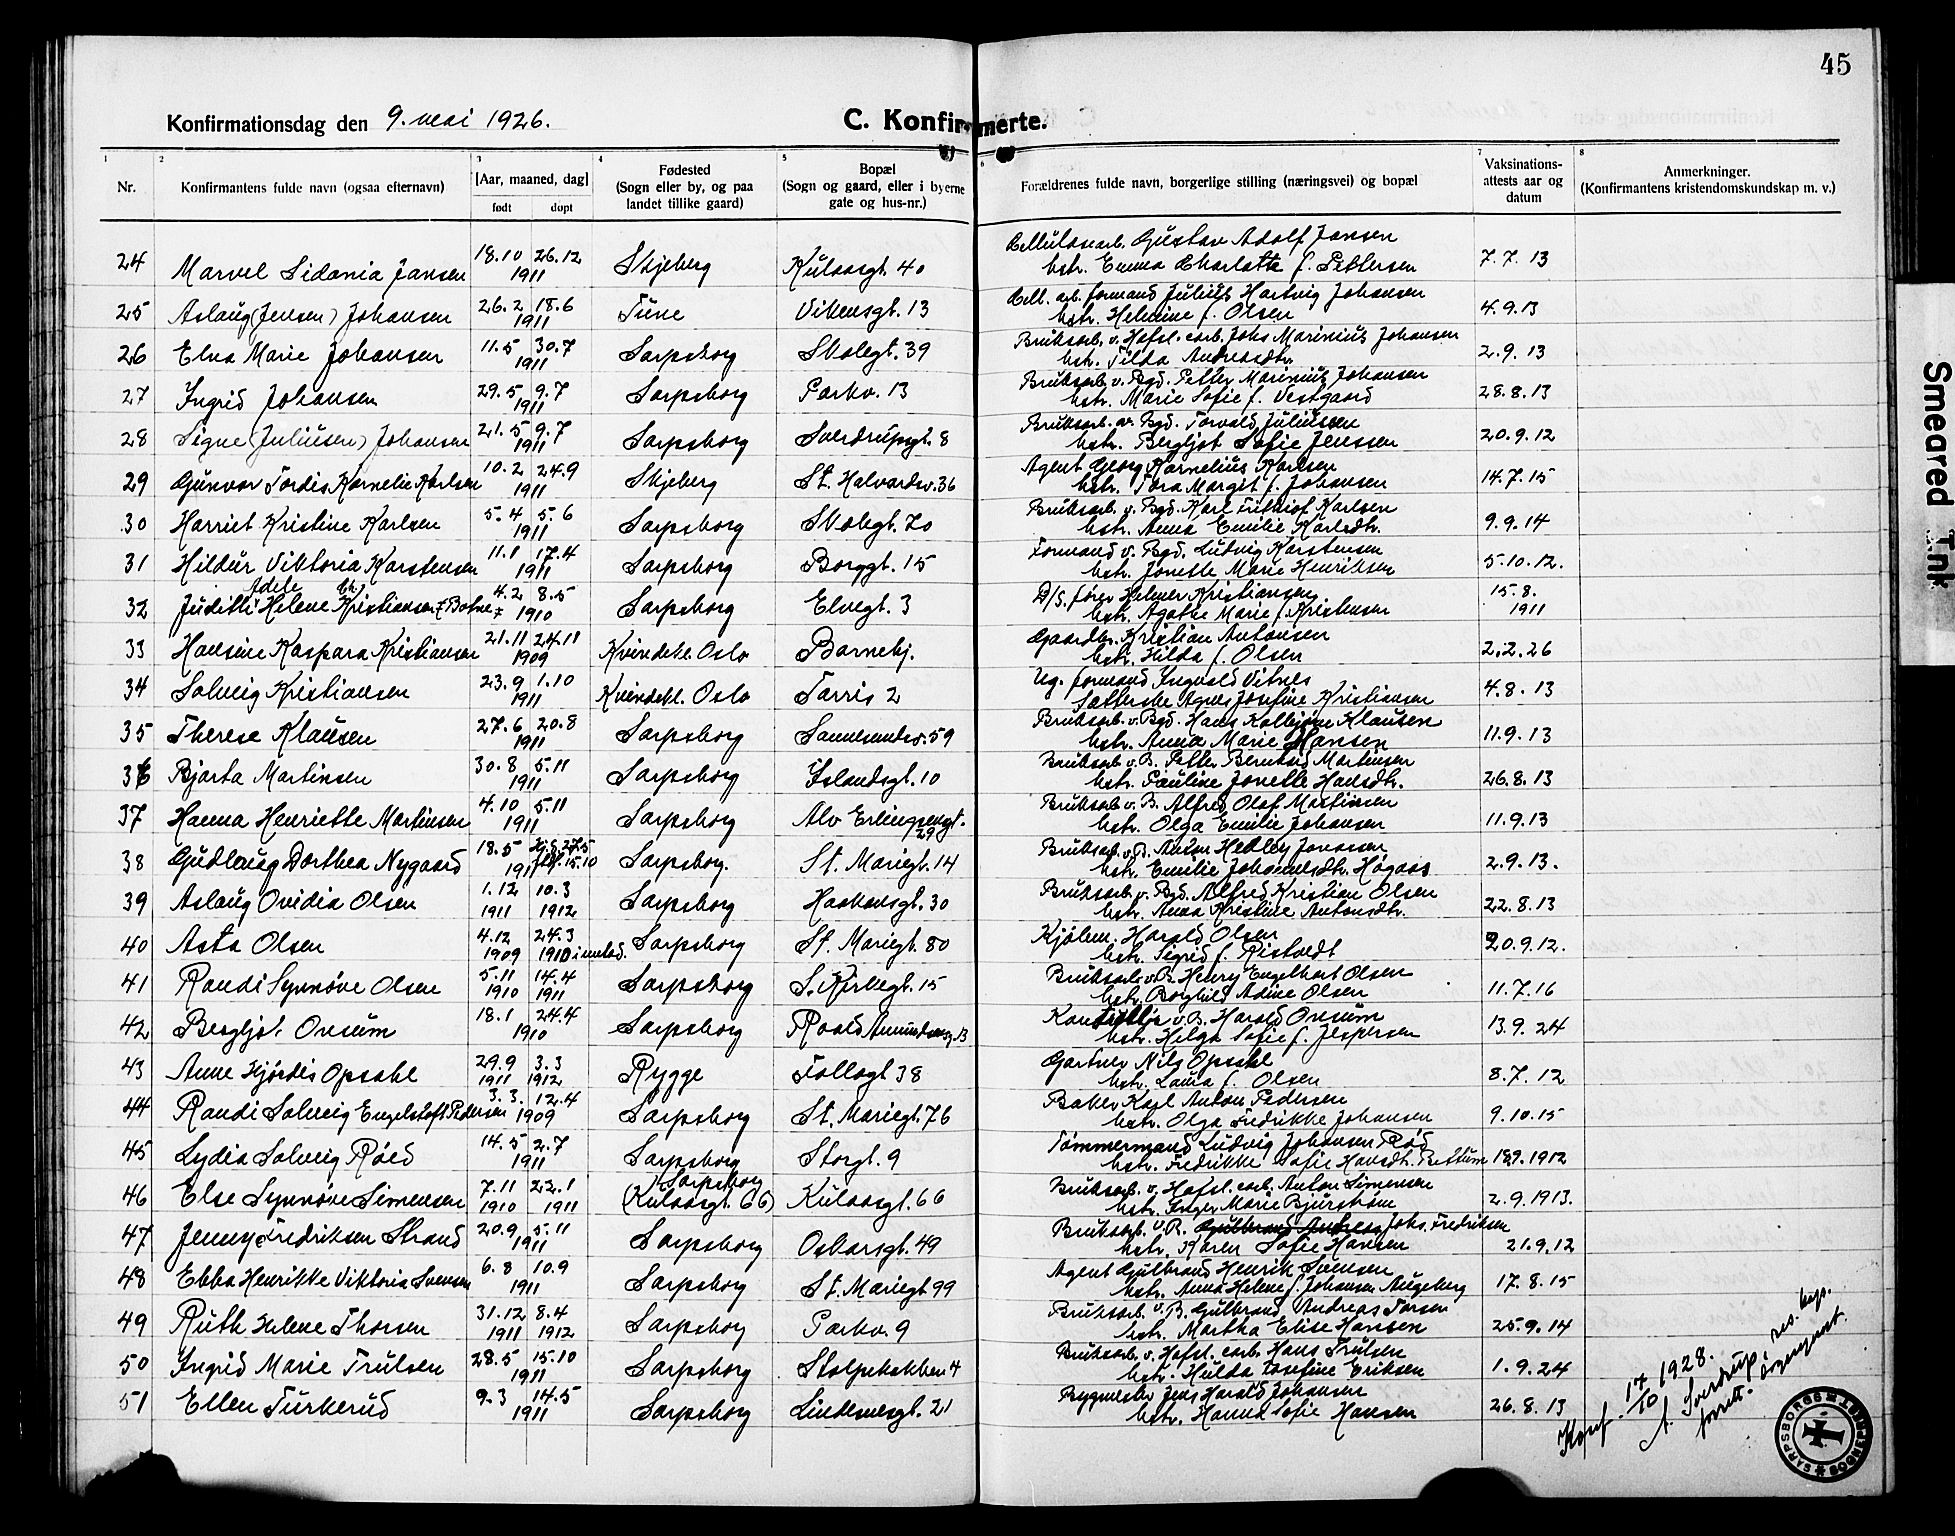 45
Konfirmationsdag den 9. mai 1926.
C. Konfirmerte.
1 2 3 4 5 6 7 8
Nr. Konfirmantens fulde navn (ogsaa efternavn) [Aar, maaned, dag] født døpt Fødested (Sogn eller by, og paa landet tillike gaard) Bopæl (Sogn og gaard, eller i byerne gate og hus-nr.) Forældrenes fulde navn, borgerlige stilling (næringsvei) og bopæl Vaksinations-attests aar og datum Anmerkninger. (Konfirmantens kristendomskundskap m. v.)
24 Marvel Sidonia Jansen 18.10 26.12 1911 Skjeberg Kulaasgt. 40 Cellulosearb. Gustav Adolf Jansen
hstr. Emma Charlotte f. Pettersen 7.7.13
25 Aslaug (Jensen) Johansen 26.2 18.6 1911 Tune Vikensgt. 13 Cell. arb. formand Julius Hartvig Johansen
hstr. Helmine f. Olsen 4.9.13
26 Elna Marie Johansen 11.5 30.7 1911 Sarpsborg Skolegt. 39 Bruksarb. v. Hafsl. carb. Johs Marinius Johansen
hstr. Tilda Andreasdtr. 2.9.13
27 Ingrid Johansen 29.5 9.7 1911 Sarpsborg Parkv. 13 Bruksarb. v. Bgd. Petter Marinius Johansen
hstr. Marie Sofie f. Vestgaard 28.8.13
28 Signe (Juliusen) Johansen 21.5 9.7 1911 Sarpsborg Sverdrupsgt. 8 Bruksarb. av Bgd. Torvald Juliussen
hstr. Bergljot Sofie Jenssen 20.9.12
29 Gunvor Tordis Kornelie Karlsen 10.2 24.9 1911 Skjeberg St. Halvardsv. 36 Agent Georg Kornelius Karlsen
hstr. Tora Margit f. Johansen 14.7.15
30 Harriet Kristine Karlsen 5.4 5.6 1911 Sarpsborg Skolegt. 70 Bruksarb. v. Bgd. Karl Frithjof Karlsen
hstr. Anna Emilie Karlsdtr. 9.9.14
31 Hildur Viktoria Karstensen 11.1 17.4 1911 Sarpsborg Borggt. 15 Formand v. Bgd. Ludvig Karstensen
hstr. Jonette Marie Henriksen 5.10.12.
Adele
32 Judith Helene Kristiansen f Botne 4.2 8.5 1910 Sarpsborg Elvegt. 3 D/S. fører Helmer Kristiansen
hstr. Agathe Marie f. Kristensen 15.8. 1911
33 Hansine Kaspara Kristiansen 21.11 24.11 1909 Kvindekl. Oslo Barnehj. Gaardbr. Kristian Antonsen
hstr. Hilda f. Olsen 2.2.26
34 Solveig Kristiansen 23.9 1.10 1911 Kvindekl. Oslo Tarris 2 Ug. formand Ingvald Vitnes
Sætterske Agnes Josefine Kristiansen 4.8.13
35 Therese Klausen 27.6 20.8 1911 Sarpsborg Sannesundsv. 59 Bruksarb. v. Bgd. Hans Kolbjørn Klausen
hstr. Anna Marie Hansen 11.9.13
36 Bjarta Martinsen 30.8 5.11 1911 Sarpsborg Islandsgt. 10 Bruksarb. v. B. Petter Bernhard Martinsen
hstr. Pauline Jonette Hansdtr. 26.8.13
37 Hanna Henriette Martinsen 4.10 5.11 1911 Sarpsborg Alv Erlingsensgt. 29 Bruksarb. v. B. Alfred Olaf Martinsen
hstr. Olga Emilie Johansen 11.9.13
38 Gudlaug Dorthea Nygaard 18.5 1911 Hj.d. 27.5 15.10 Sarpsborg. St. Mariegt. 14 Bruksarb. v. B. Anton Hedley Jonassen
hstr. Emilie Johannesdtr. Høgaas 2.9.13.
39 Aslaug Ovidia Olsen 1.12 1911 10.3 1912 Sarpsborg Haakonsgt. 30 Bruksarb. v. Bgd. Alfred Kristian Olsen
hstr. Anna Kristine Antonsdtr. 22.8.13
40 Asta Olsen 4.12 1909 24.3 1910 Sarpsborg St. Mariegt. 80 Kjølem. Harald Olsen
hstr. Sigrid f. Ristvedt 20.9.12.
41 Randi Synnøve Olsen 5.11 1910 14.4 1911 Sarpsborg S. Kirkegt. 15 Bruksarb. v. B. Henry Engelhart Olsen
hstr. Borghild Adine Olsen 11.7.16
42 Bergljot Oresum 18.1 24.4 1910 Sarpsborg Roald Amundsensg. 13 Kontorbetj. v. B. Harald Oresum
hstr. Helga Sofie f. Jespersen 13.9.24
43 Anne Hjørdis Opsahl 29.9 1911 3.3 1912 Rygge Follogt 38 Gartner Nils Opsahl
hstr. Laura f. Olsen 8.7.12
44 Randi Solveig Engelstoft Pedersen 3.3. 12.4 1909 Sarpsborg St. Mariegt. 76 Baker Karl Anton Pedersen
hstr. Olga Fredrikke Johansen 9.10.15
45 Lydia Solveig Røed 14.5 2.7 1911 Sarpsborg Storgt. 9 Tømmermand Ludvig Johansen Rød
hstr. Fredrikke Sofie Hansdtr. Bettum 18.9.1912
46 Else Synnøve Simensen 7.11 1910 22.1 1911 Sarpsborg (Kulaasgt. 66) Kulaasgt. 66 Bruksarb. v. Hafsl. carb. Anton Simensen
hstr. Inger Marie Bjurstrøm 2.9.1913.
47 Jenny Fredriksen Strand 20.9 5.11 1911 Sarpsborg Oskarsgt. 49 Bruksarb. v. B. Gulbrand Andreas Johs. Fredriksen
hstr. Karen Sofie Hansen 21.9.12
48 Ebba Henrikke Viktoria Svensen 6.8 10.9 1911 Sarpsborg St. Mariegt 99 Agent Gulbrand Henrik Svensen
hstr. Anna Helene f. Johansen Augeberg 17.8.15
49 Ruth Helene Thorsen 31.12 1911 8.4 1912 Sarpsborg Parkv. 9 Bruksarb. v. B. Gulbrand Andreas Torsen
hstr. Martha Elise Hansen 25.9.14
50 Ingrid Marie Trulsen 28.5 15.10 1911 Sarpsborg Stolpebakken 4 Bruksarb. v. Hafsl. carb. Hans Trulsen
hstr. Hulda Josefine Eriksen 1.9.24
51 Ellen Turkerud 9.3 14.5 1911 Sarpsborg Lindemesgt. 21 Bygmester Jens Harald Johansen
hstr. Hanna Sofie Hansen 26.8.13
Konf. 14/10 1928.
A. Sverdrup, res. kap.
forrett. sogneprest.
SARPSBORG
Smeared Ink